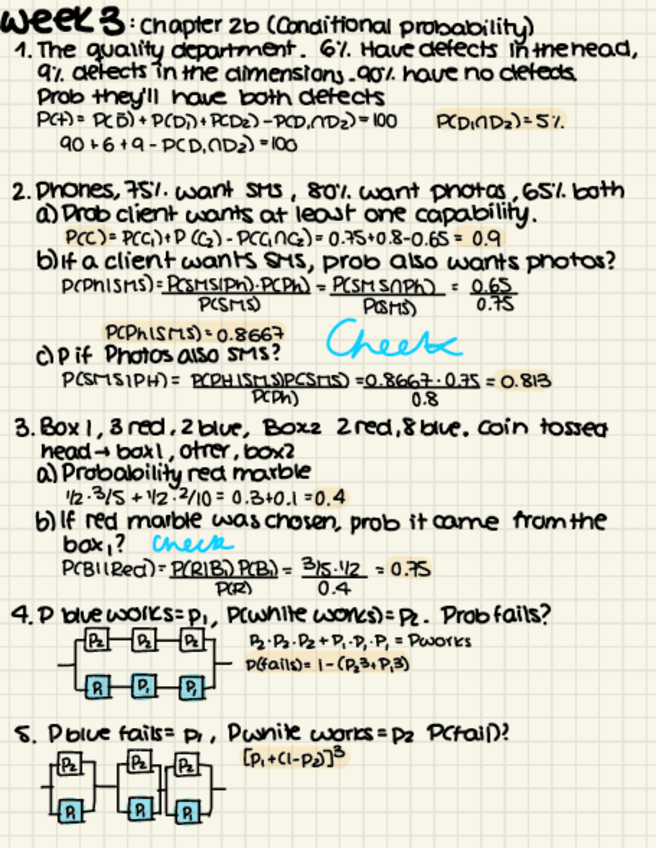 week 3: Chapter 2b (Conditional probability)
1. The quality department. 6% Have defects in the head,
9% defects in the dimensions. 90% have no defects.
Prob they'll have both defects
P(t) = P(D̄) + P(D₁) + P(D₂) - P(D₁∩D₂) = 100 P(D₁∩D₂) = 5%
90 + 6 + 9 - P(D₁∩D₂) = 100
2. Phones, 75% want SMS, 80% want photos, 65% both
a) Prob client wants at least one capability.
P(C) = P(C₁) + P(C₂) - P(C₁∩C₂) = 0.75 + 0.8 - 0.65 = 0.9
b) If a client wants SMS, prob also wants photos?
P(Ph|SMS) = P(SMS|Ph)·P(Ph) = P(SMS∩Ph) = 0.65
P(SMS) P(SMS) 0.75
P(Ph|SMS) = 0.8667
Check
c) P if Photos also SMS?
P(SMS|PH) = P(PH|SMS)P(SMS) = 0.8667·0.75 = 0.813
P(Ph) 0.8
3. Box 1, 3 red, 2 blue, Box 2 2 red, 8 blue. Coin tossed
head → box1, otrer, box2
a) Probability red marble
1/2·3/5 + 1/2·2/10 = 0.3 + 0.1 = 0.4
b) If red marble was chosen, prob it came from the
box₁? Check
P(B1|Red) = P(R|B₁) P(B₁) = 3/5·1/2 = 0.75
P(R) 0.4
4. P blue works = p₁, P(white works) = P₂. Prob fails?
P₂ P₂ P₂ P₂·P₂·P₂ + P₁·P₁·P₁ = Pworks
P₁ P₁ P₁ P(fails) = 1 - (P₂3 + P₁3)
5. P blue fails = p₁, P white works = p₂ P(fail)?
P₂ P₂ P₂ [P₁ + (1 - P₂)]³
P₁ P₁ P₁